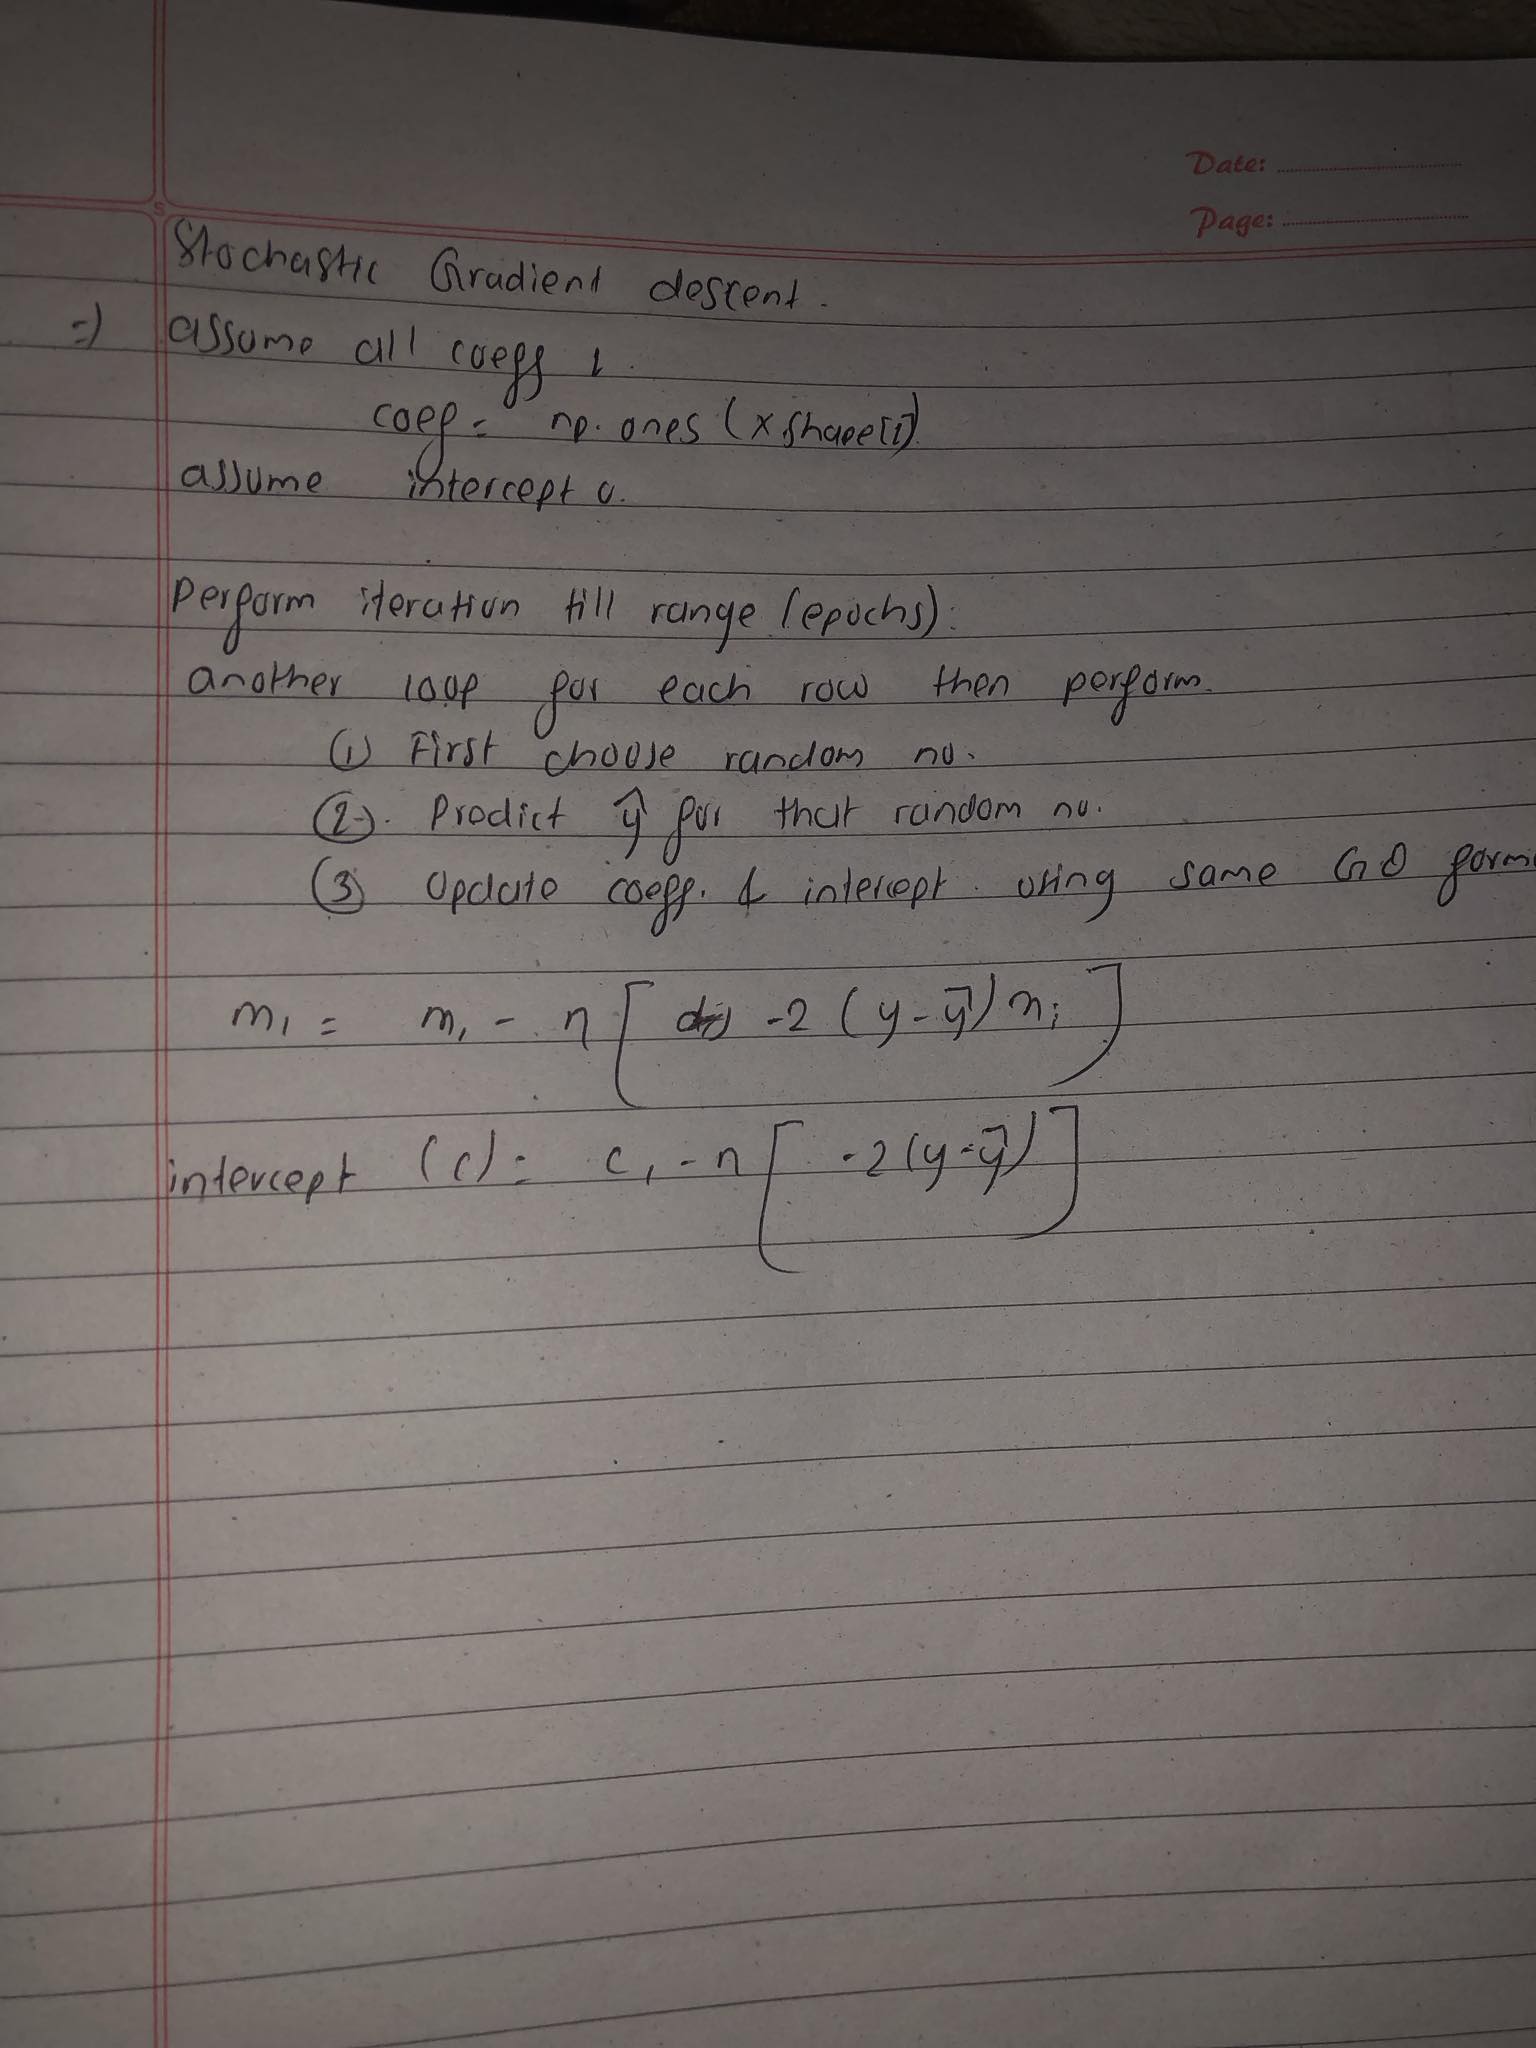 Date:
Page:
Stochastic Gradient descent.
=) assume all coeff 1.
coef = np.ones (x.shape[1])
assume intercept 0.
Perform iteration till range (epochs):
another loop for each row then perform.
(1) First choose random no.
(2). Predict ŷ for that random no.
(3) Update coeff. & intercept. using same GD
m₁ = m₁ - η [ -2 (y-ŷ) xᵢ ]
intercept (c) = c₁ - η [ -2(y-ŷ) ]